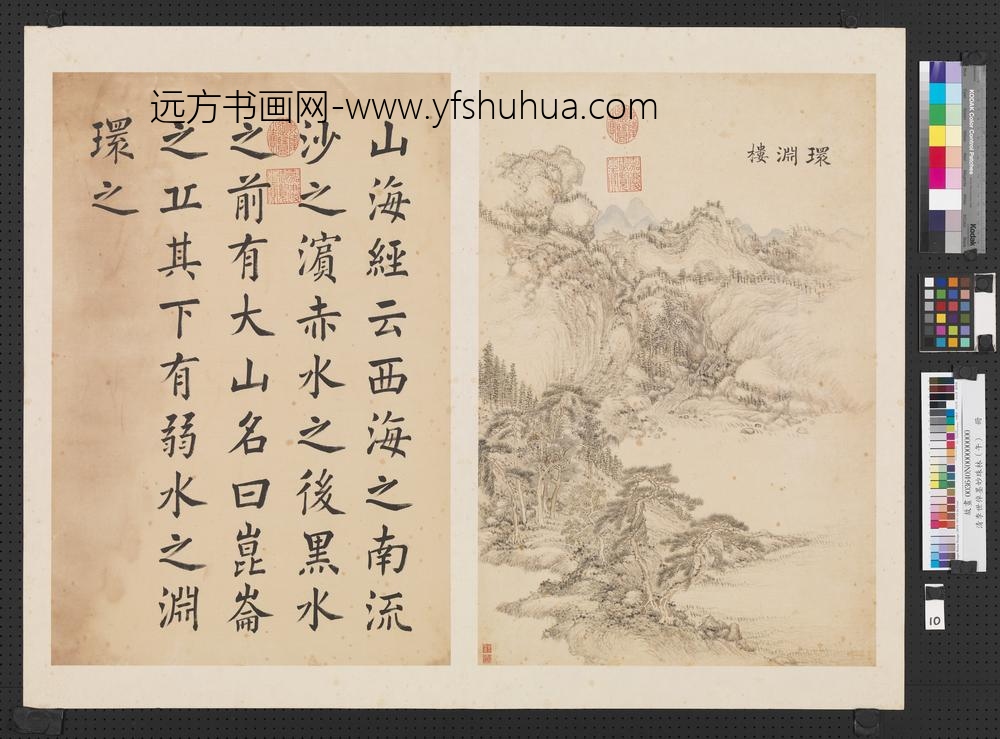 远方书画网-www.yfshuhua.com
環淵樓
山海經云西海之南流
沙之濱赤水之後黑水
之前有大山名曰崑崙
之丘其下有弱水之淵
環之
KODAK Color Control Patches
Kodak
清李世倬墨妙珠林（午） 冊
10